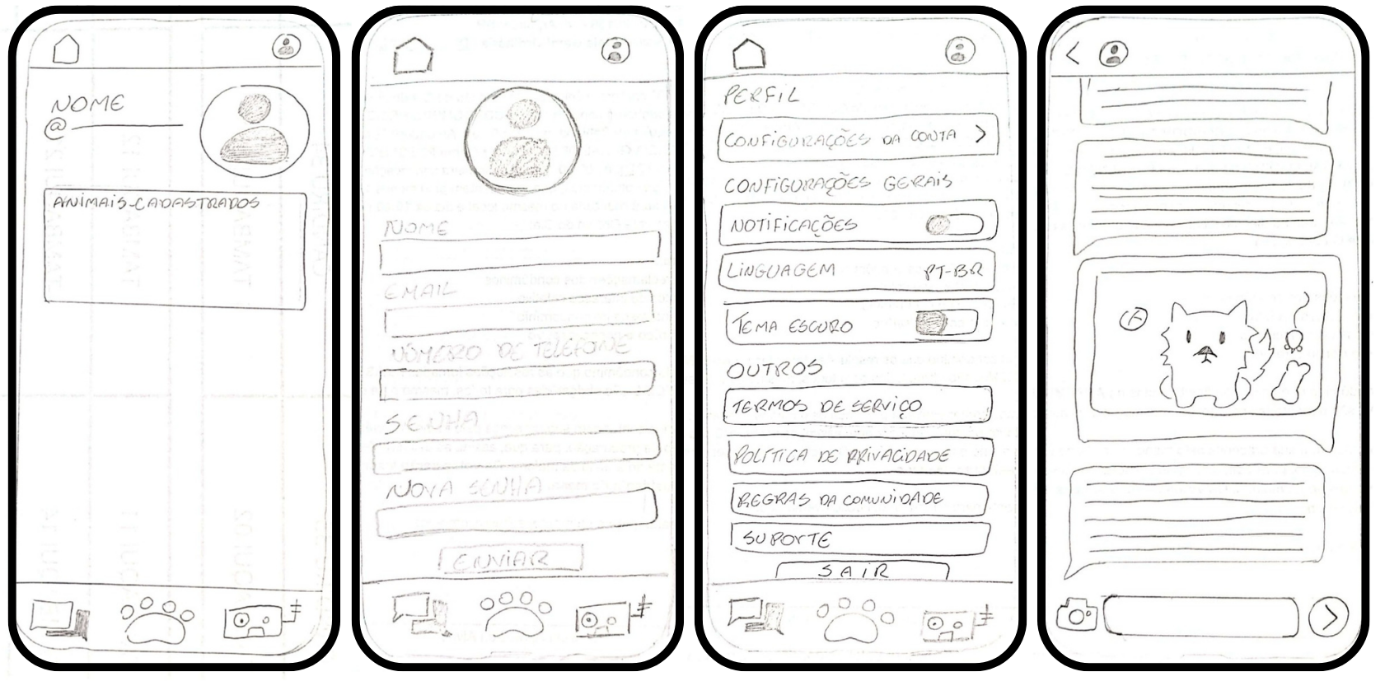 NOME
@
ANIMAIS CADASTRADOS
NOME
EMAIL
NÚMERO DE TELEFONE
SENHA
NOVA SENHA
ENVIAR
PERFIL
CONFIGURAÇÕES DA CONTA >
CONFIGURAÇÕES GERAIS
NOTIFICAÇÕES
LINGUAGEM PT-BR
TEMA ESCURO
OUTROS
TERMOS DE SERVIÇO
POLÍTICA DE PRIVACIDADE
REGRAS DA COMUNIDADE
SUPORTE
SAIR
<
>